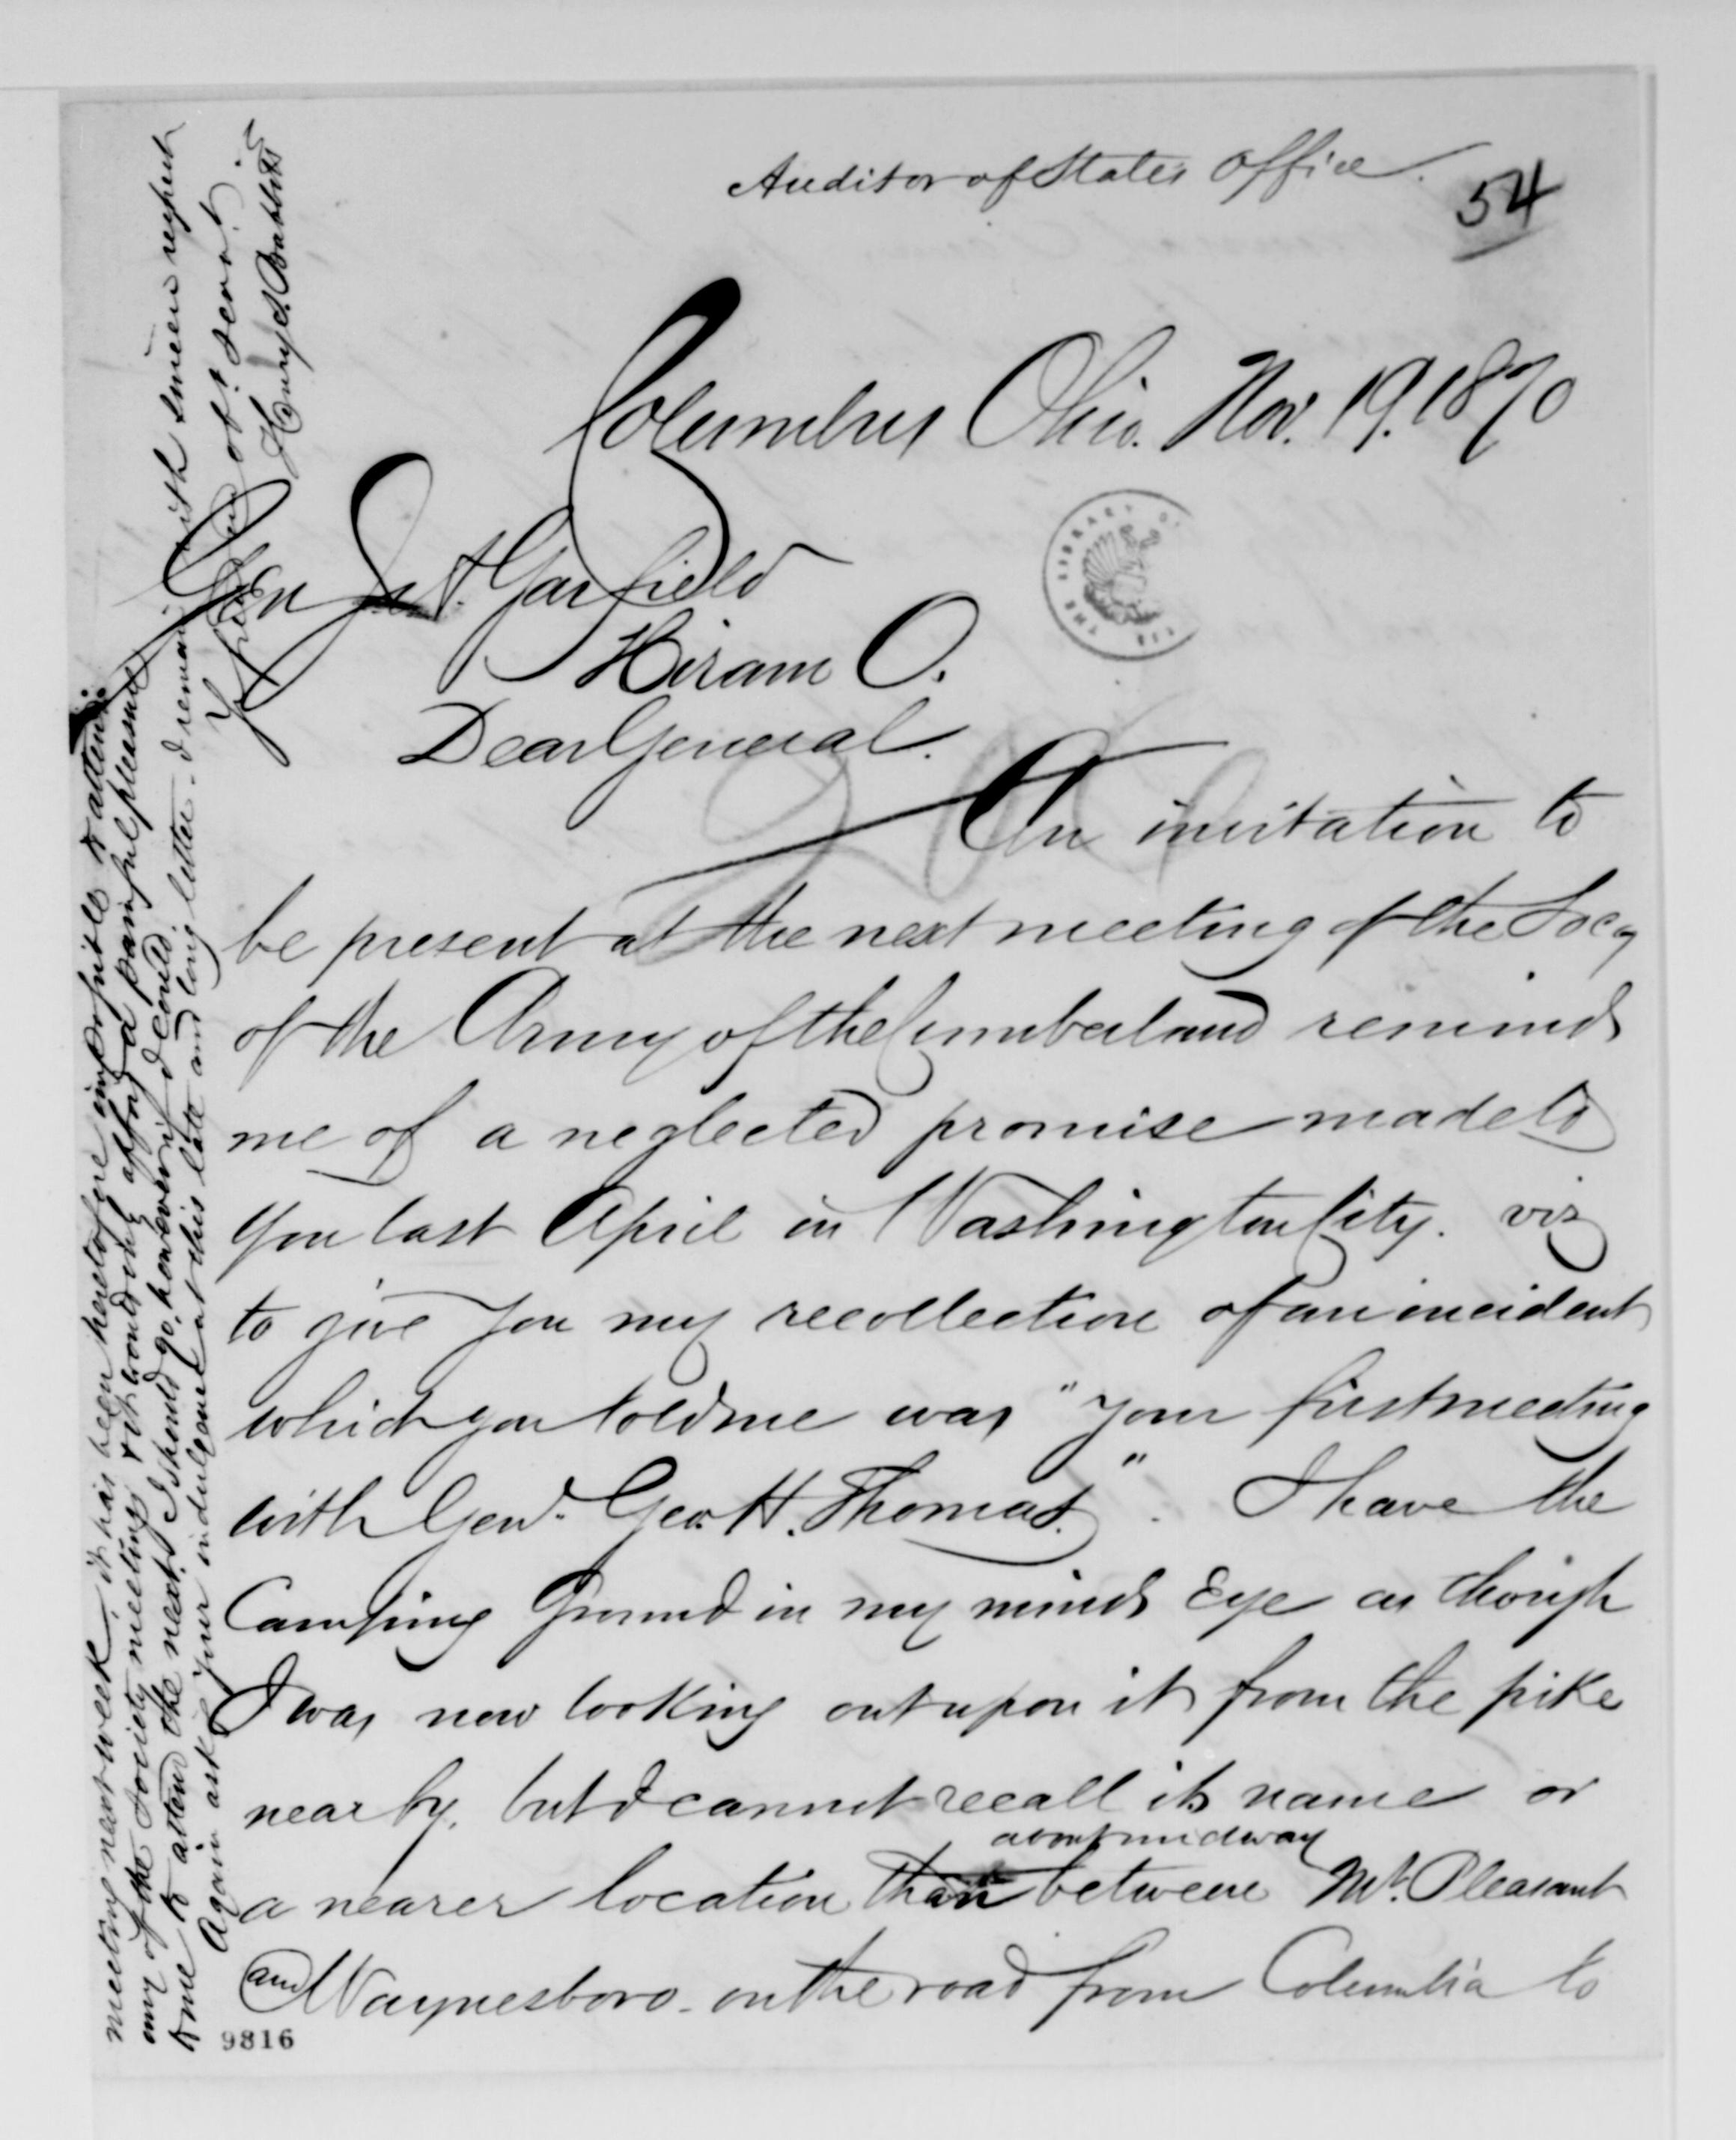 Auditor of States Office.
54
Columbus Ohio. Nov. 19. 1870
Gen Jas A. Garfield
Hiram O.
Dear General.
An invitation to
be present at the next meeting of the Socy
of the Army of the Cumberland reminds
me of a neglected promise made to
you last April in Washington City. viz
to give you my recollection of an incident
which you told me was "your first meeting
with Genl. Geo. H. Thomas." I have the
Camping Ground in my minds Eye as though
I was now looking out upon it from the pike
near by. but I cannot recall its name or
a nearer location than about midway between Mt. Pleasant
and Waynesboro. on the road from Columbia to
meeting next week, it has been heretofore impossible to attend
any of the Society meetings & it would only afford a painful pleasure
to me to attend the next. I should go, however, if I could.
Again ask your indulgence at this late and long letter. I remain with sincere respect
Your friend and obt. servt.
Henry
THE LIBRARY O
9816